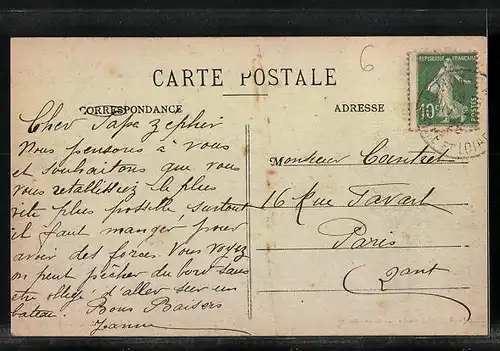 6
CARTE POSTALE
CORRESPONDANCE
ADRESSE
REPUBLIQUE FRANÇAISE
10c
POSTES
ET LOIRE
Cher Papa Zephir
Nous pensons à vous
et souhaitons que vous
vous retablissiez le plus
vite plus possible surtout
il faut manger pour
avoir des forces. Vous voyez
on peut pêcher du bord sans
etre obligé d'aller sur un
bateau. Bons Baisers
Jeanne
Monsieur
16 Rue Favart
Paris